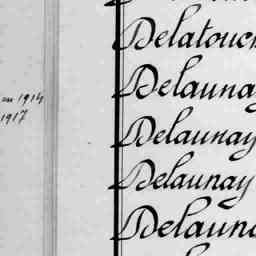 Delatouch
Delaunay
au 1914
1917
Delaunay
Delaunay
Delauna